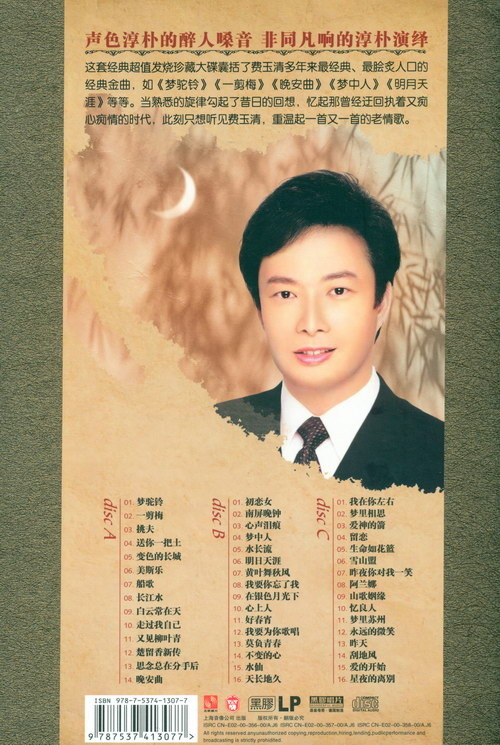 声色淳朴的醉人嗓音 非同凡响的淳朴演绎
这套经典超值发烧珍藏大碟囊括了费玉清多年来最经典、最脍炙人口的
经典金曲，如《梦驼铃》《一剪梅》《晚安曲》《梦中人》《明月天
涯》等等。当熟悉的旋律勾起了昔日的回想，忆起那曾经迂回执着又痴
心痴情的时代，此刻只想听见费玉清，重温起一首又一首的老情歌。
disc A
01. 梦驼铃
02. 一剪梅
03. 挑夫
04. 送你一把土
05. 变色的长城
06. 美斯乐
07. 船歌
08. 长江水
09. 白云常在天
10. 走过我自己
11. 又见柳叶青
12. 楚留香新传
13. 思念总在分手后
14. 晚安曲
disc B
01. 初恋女
02. 南屏晚钟
03. 心声泪痕
04. 梦中人
05. 水长流
06. 明日天涯
07. 黄叶舞秋风
08. 我要你忘了我
09. 在银色月光下
10. 心上人
11. 好春宵
12. 我要为你歌唱
13. 莫负青春
14. 不变的心
15. 水仙
16. 天长地久
disc C
01. 我在你左右
02. 梦里相思
03. 爱神的箭
04. 留恋
05. 生命如花篮
06. 雪山盟
07. 昨夜你对我一笑
08. 阿兰娜
09. 山歌姻缘
10. 忆良人
11. 梦里苏州
12. 永远的微笑
13. 昨天
14. 刮地风
15. 爱的开始
16. 星夜的离别
ISBN 978-7-5374-1307-7
9 787537 413077 >
黑膠 LP
COMPACT
disc
DIGITAL AUDIO
上海音像公司 出版 版权所有·翻版必究
ISRC CN-E02-05-356-00/A.J6 ISRC CN-E02-05-357-00/A.J6 ISRC CN-E02-05-366-00/A.J6
All rights reserved.anyunauthorized copying,reproduction,hiring,lending,pudlicperformance and
broadcasting is strictly prohibited